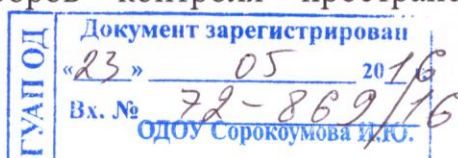 контроля простран
ГУАП ОД
Документ зарегистрирован
«23» 05 2016
Вх. № 72-869/16
ОДОУ Сорокоумова И.Ю.